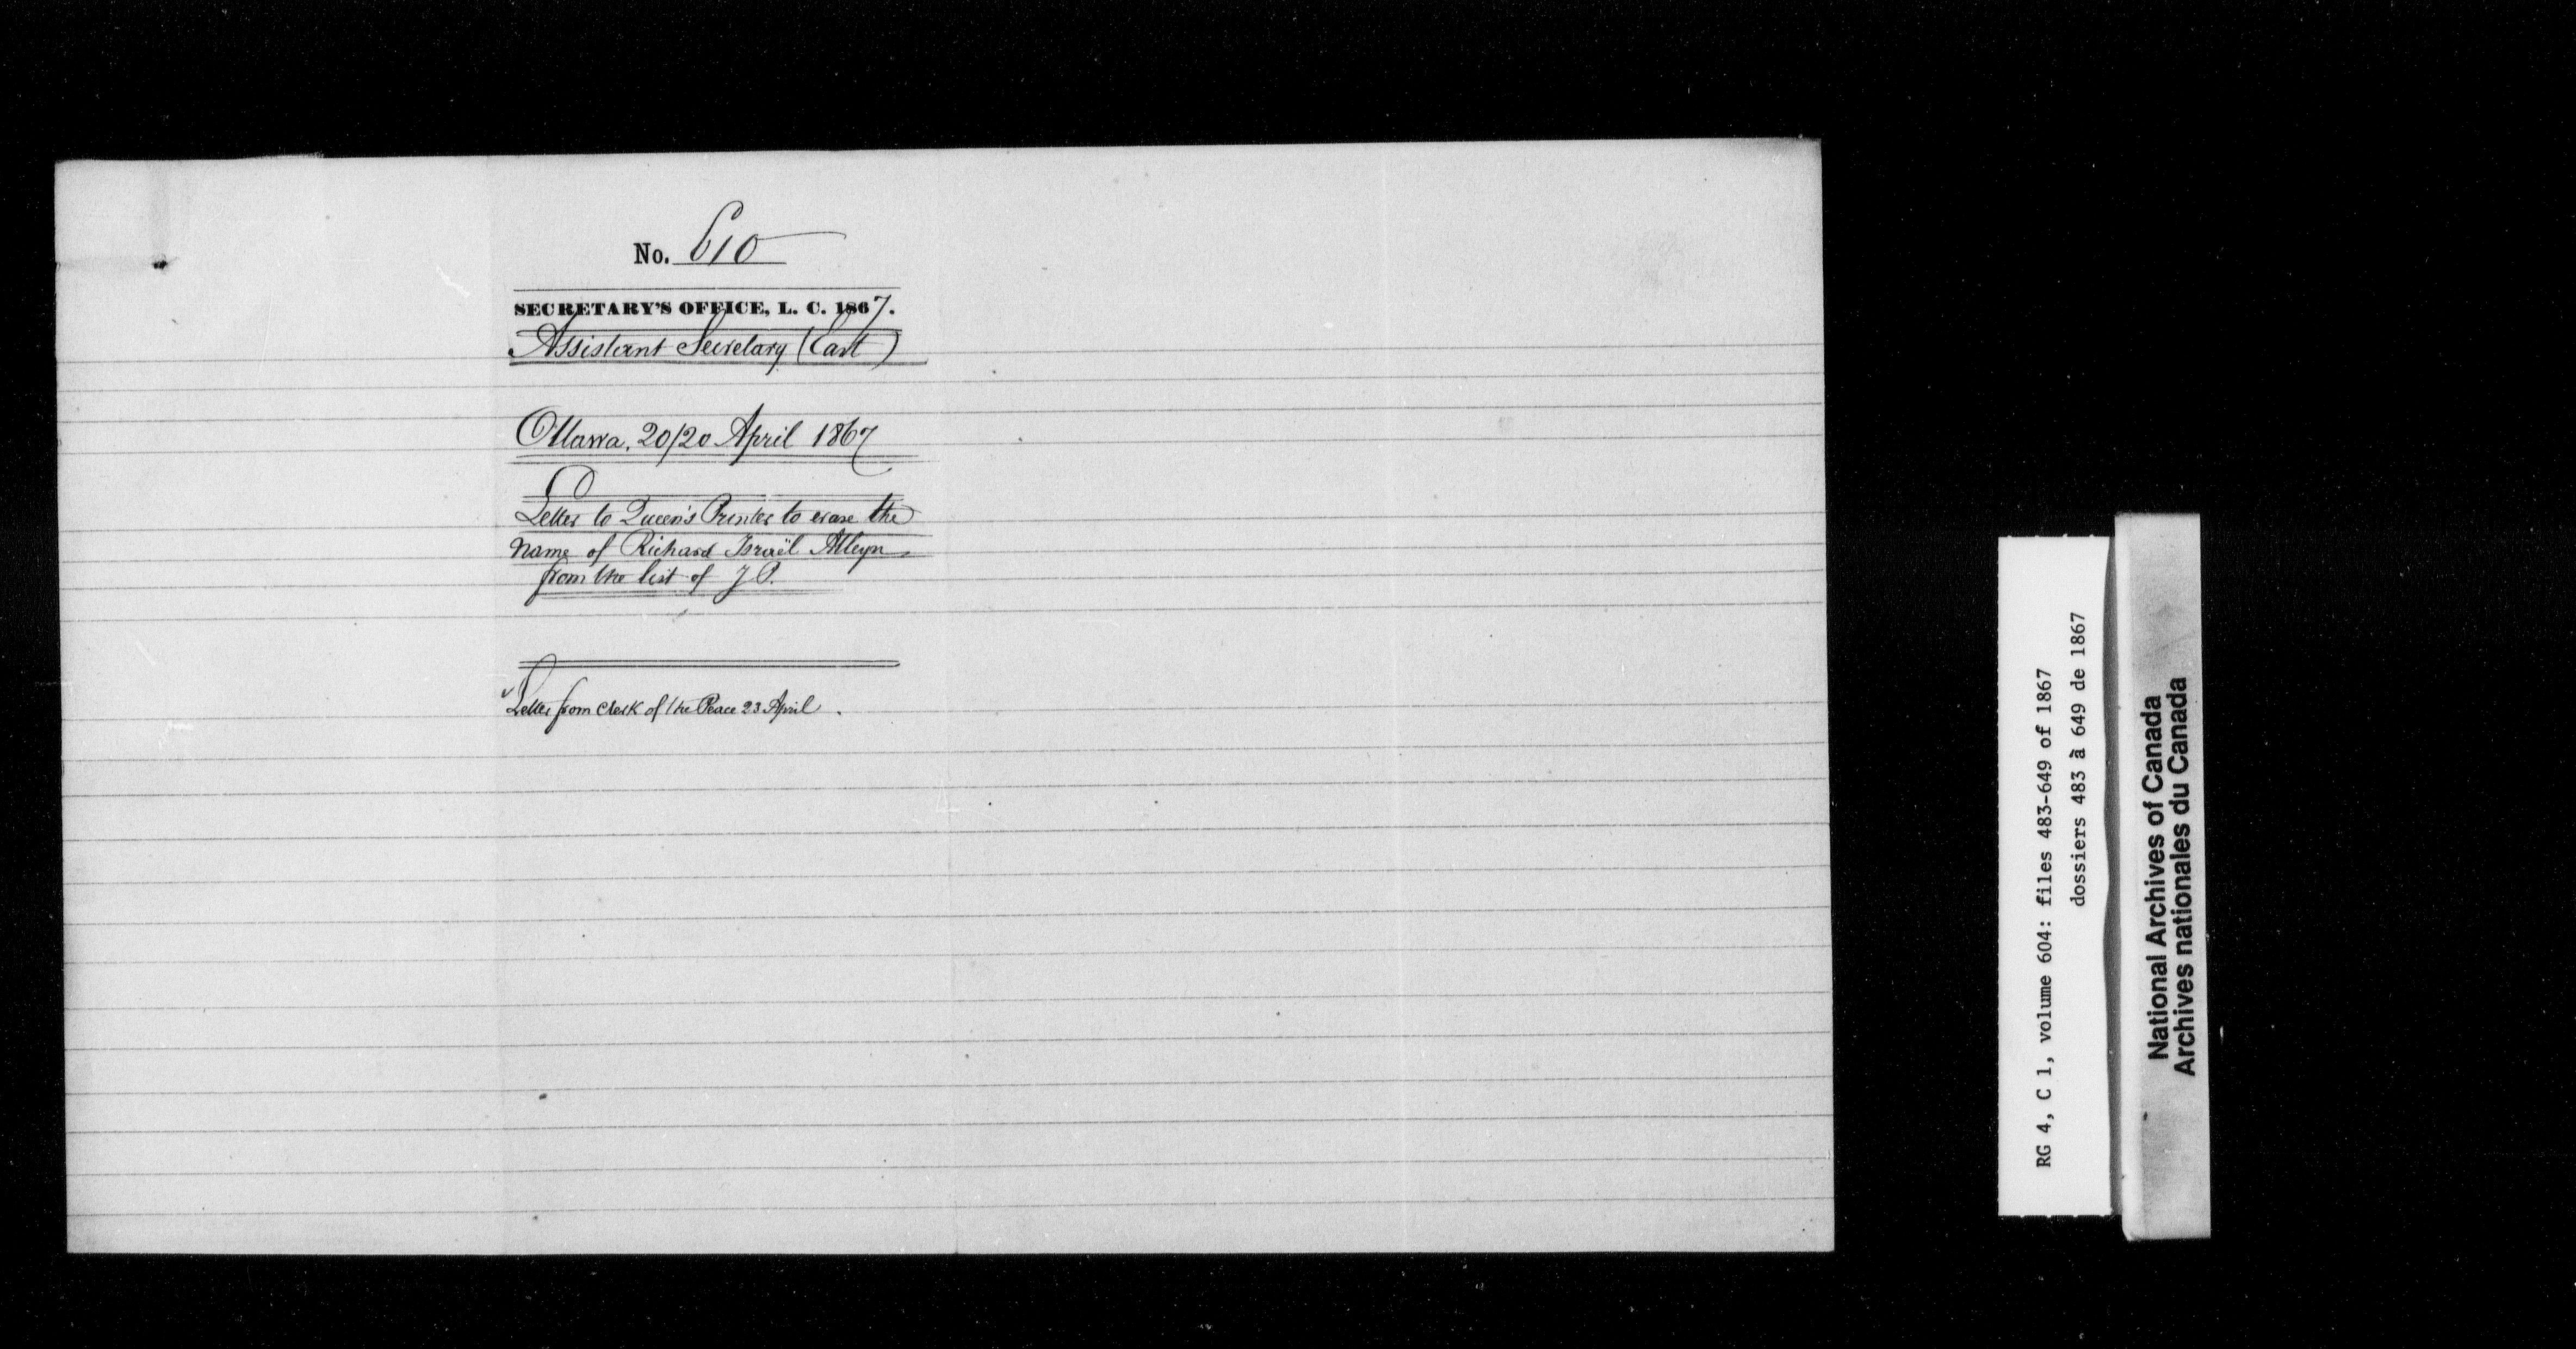 No. 610
SECRETARY'S OFFICE, L. C. 1867.
Assistant Secretary (East)
Ottawa, 20/20 April 1867
Letter to Queen's Printer to erase the
name of Richard Israël Alleyn
from the list of J. P.
Letter from Clerk of the Peace 23 April.
RG 4, C 1, volume 604: files 483-649 of 1867
dossiers 483 à 649 de 1867
National Archives of Canada
Archives nationales du Canada